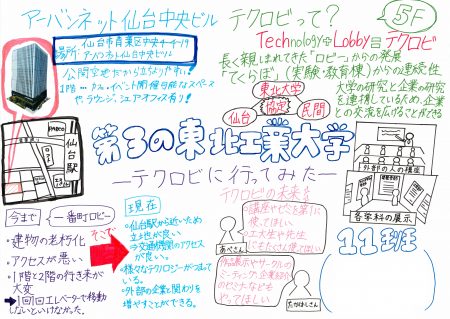 アーバンネット仙台中央ビル
場所
仙台市青葉区中央4-4-19
アーバンネット仙台中央ビル
公開空地だから立ちよりやすい!
1階…カフェ・イベント開催可能なスペース
やラウンジ、シェアオフィス有り!
テクロビって?
5F
Technology+Lobby=テクロビ
長く親しまれてきた「ロビー」からの発展
「てくらぼ」(実験・教育棟)からの連続性
東北大学
仙台
協定
民間
大学の研究と企業の研究
を連携しているため、企業
との交流を広げることができる
第3の東北工業大学
ーテクロビに行ってみたー
仙台駅
外部の人の講座
各学科の展示
今まで
一番町ロビー
・建物の老朽化
・アクセスが悪い
・1階と2階の行き来が
大変
→1回1回エレベーターで移動
しないといけなかった。
そこで
現在
・仙台駅から近いため
立地が良い
→交通機関のアクセス
が良い。
・様々なテクノロジーがつまって
いる。
・外部の企業と関わりを
増やすことができる。
テクロビの未来を
・講座やゼミを募う
使ってほしい
・工大生や先生
にもたくさん使ってほしい
あべさん
作品展示やサークルの
ミーティング、企業紹介
のセミナーなども
やってほしい
たかはしさん
11班